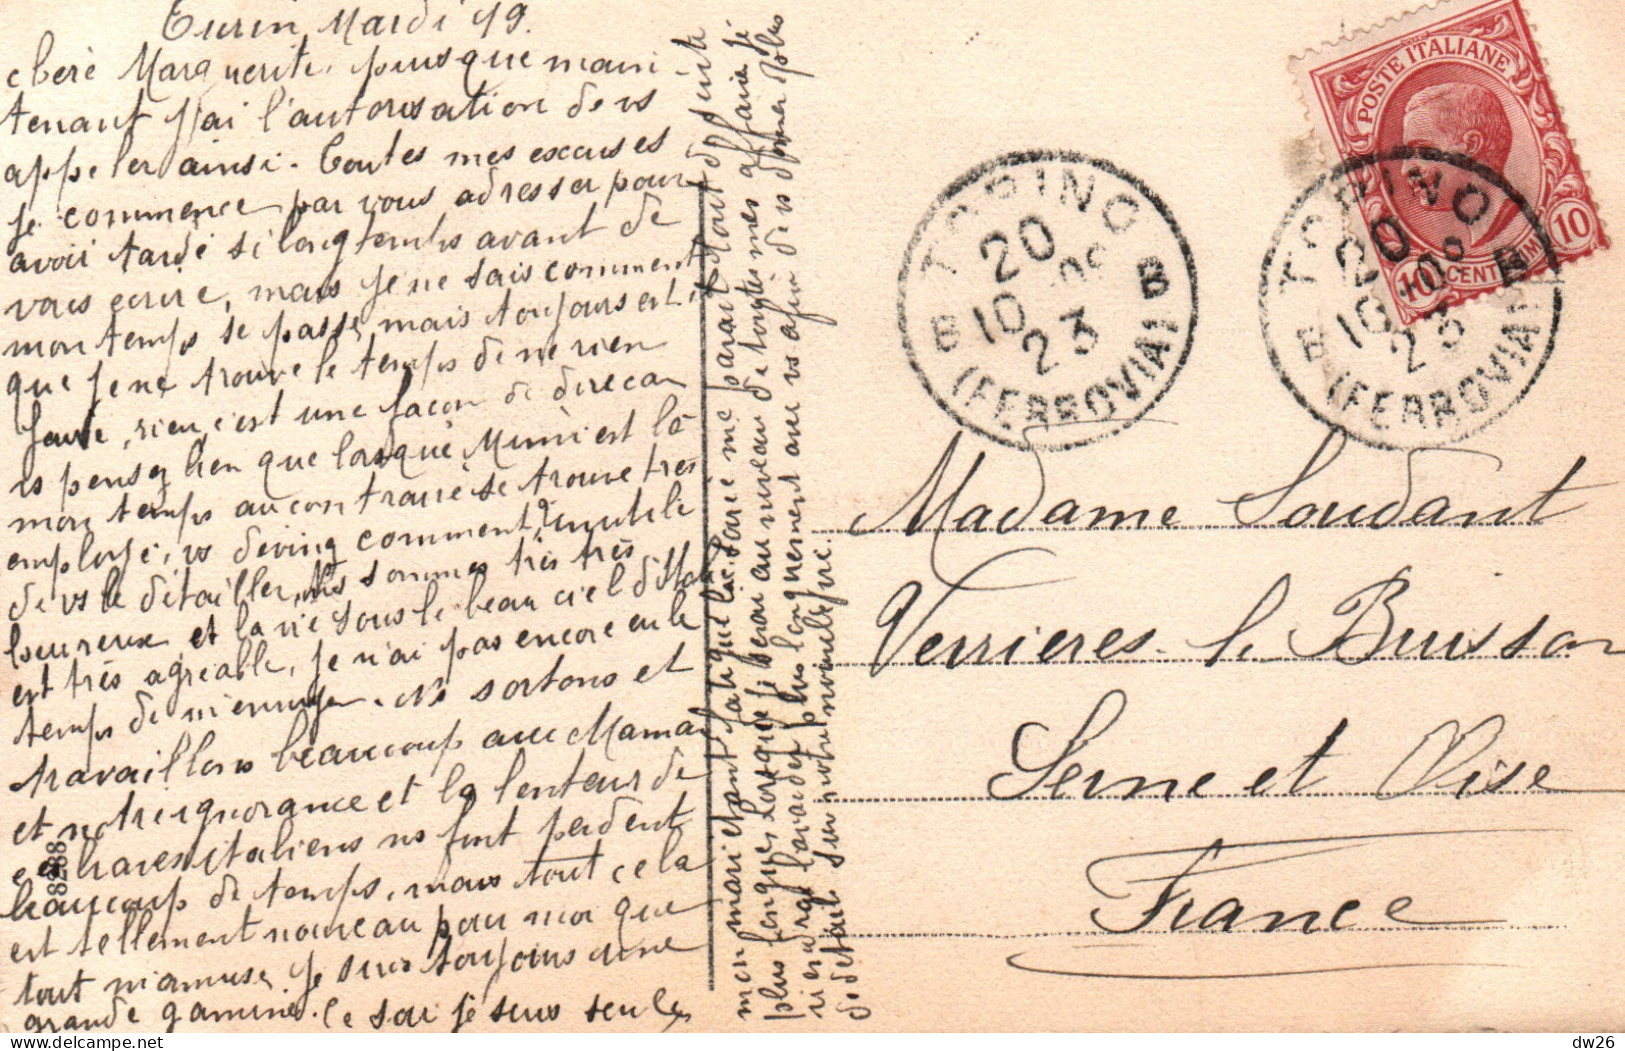 Turin Mardi 19.
chère Marguerite, puisque main-
tenant j'ai l'autorisation de vs
appeler ainsi. Toutes mes excuses
je commence par vous adresser pour
avoir tardé si longtemps avant de
vous écrire, mais je ne sais comment
mon temps se passe, mais toujours est-il
que je ne trouve le temps de ne rien
faire, rien, c'est une façon de dire car
vs pensez bien que lorsque Mimi est là
mon temps au contraire se trouve très
employé, vs devinez comment? inutile
de vs le détailler, Ns sommes très très
heureux et la vie sous le beau ciel d'Italie
est très agréable, je n'ai pas encore eu le
temps de m'ennuyer. Ns sortons et
travaillons beaucoup avec Maman
et notre ignorance et la lenteur de
ces braves italiens ns font perdre
beaucoup de temps, mais tout cela
est tellement nouveau pour moi que
tout m'amuse, je suis toujours une
grande gamine. Ce soir je suis seule
mon mari étant fatigué la soirée me paraît tout de suite
plus longue, lorsque je serai au niveau de toutes mes affaires je
viendrai bavarder plus longuement avec vs afin de vs donner plus
de détails sur notre nouvelle vie.
88288
POSTE ITALIANE
10 CENTESIMI 10
TORINO
20
10
23
(FERROVIA)
TORINO
20
10
23
(FERROVIA)
Madame Soudant
Verrieres. le Buisson
Seine et Oise
France
dw26